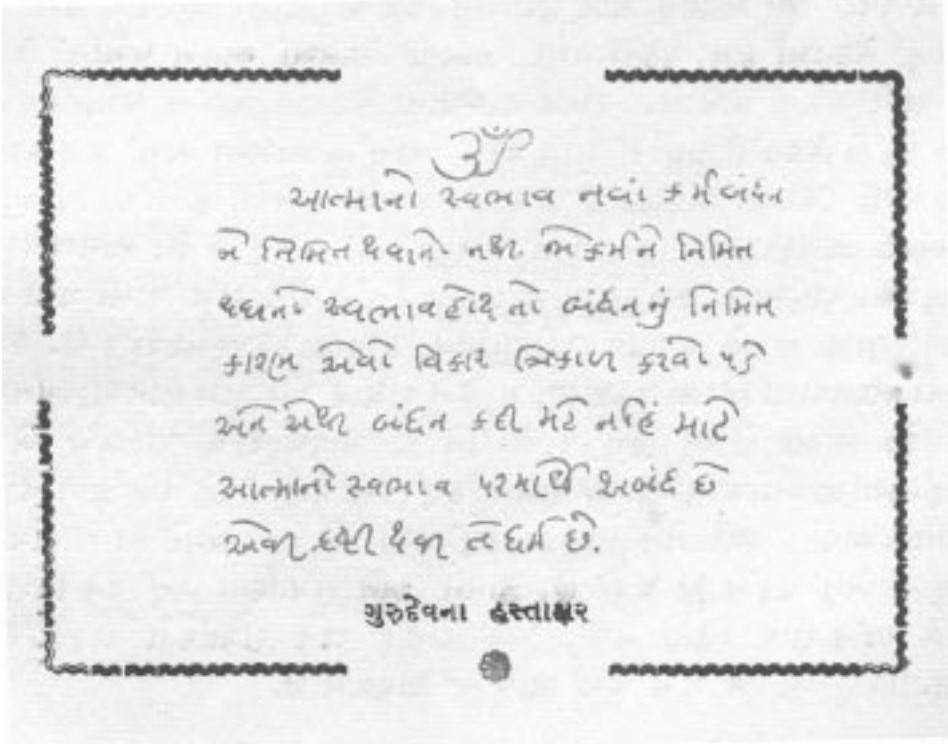 ૐ
આત્માનો સ્વભાવ નવાં કર્મબંધન
ને નિમિત થવાનો નથી. જો કર્મને નિમિત
થવાનો સ્વભાવ હોય તો બંધનનું નિમિત
કારણ એવો વિકાર ત્રિકાળ કરવો પડે
અને એથી બંધન કદી મટે નહિં માટે
આત્માનો સ્વભાવ પરમાર્થે અબંધ છે
એવી દ્રષ્ટી થવી તે ધર્મ છે.
ગુરુદેવના હસ્તાક્ષર